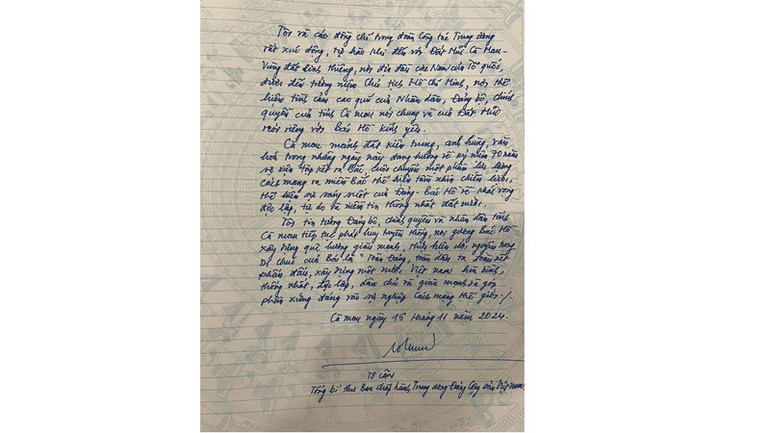 Tôi và các đồng chí trong đoàn Công tác Trung ương
rất xúc động, tự hào khi đến với Đất Mũi Cà Mau-
Vùng đất linh thiêng, nơi địa đầu cực Nam của Tổ quốc,
được đến tưởng niệm Chủ tịch Hồ Chí Minh, nơi thể
hiện tình cảm cao quý của Nhân dân, Đảng bộ, chính
quyền của tỉnh Cà Mau nói chung và của Đất Mũi
nói riêng với Bác Hồ kính yêu.
Cà Mau mảnh đất kiên trung, anh hùng, văn
hoá trong những ngày này đang hướng về kỷ niệm 70 năm
sự kiện tập kết ra Bắc, cuộc chuyển một phần lực lượng
cách mạng ra miền Bắc thể hiện tầm nhìn chiến lược,
thể hiện sự sáng suốt của Đảng- Bác Hồ về khát vọng
độc lập, tự do và niềm tin thống nhất đất nước.
Tôi tin tưởng Đảng bộ, chính quyền và nhân dân tỉnh
Cà Mau tiếp tục phát huy truyền thống, noi gương Bác Hồ
xây dựng quê hương giàu mạnh, thực hiện nguyện vọng
Di chúc của Bác là "Toàn Đảng, toàn dân ta đoàn kết
phấn đấu, xây dựng một nước Việt Nam hoà bình,
thống nhất, độc lập, dân chủ và giàu mạnh và góp
phần xứng đáng vào sự nghiệp Cách mạng thế giới./.
Cà Mau ngày 16 tháng 11 năm 2024.
Tô Lâm
Tổng bí thư Ban chấp hành Trung ương Đảng Cộng sản Việt Nam